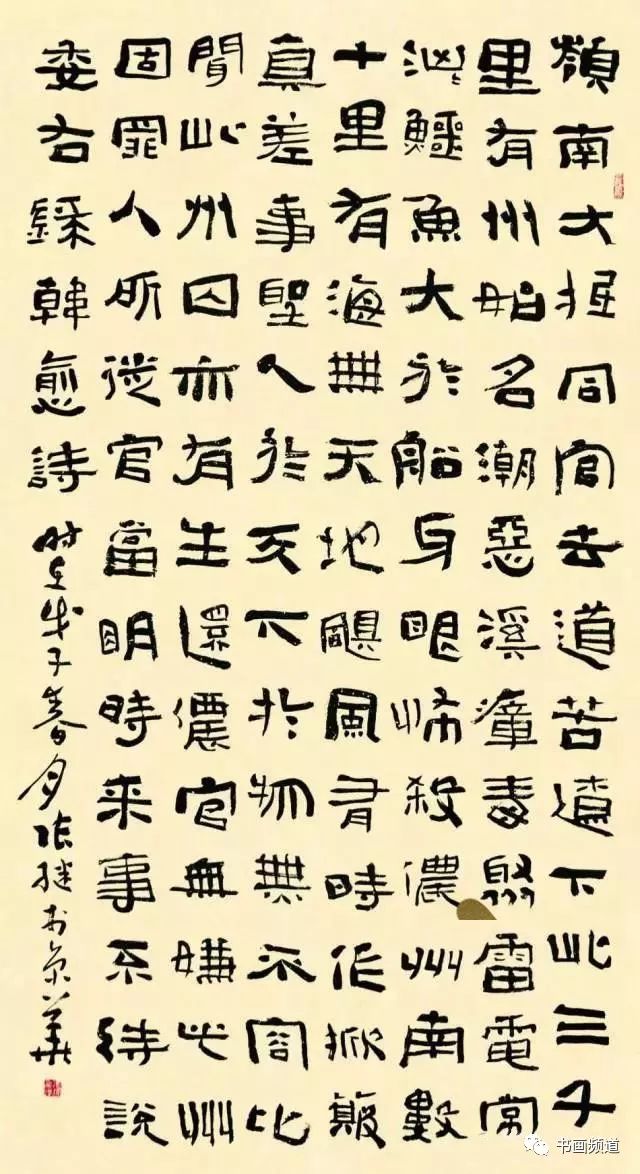 嶺南大抵同官去道苦遼下此三千
里有州始名潮惡溪瘴毒聚雷電常
汹鱷魚大於船牙眼怖殺儂州南數
十里有海無天地颶風有時作掀簸
真差事聖人於天下於物無不容比
聞此州囚亦有生還儂官無嫌此州
固罪人所徙官當明時来事不待說
委右録韓愈詩时在戊子春月张继於京華
书画频道